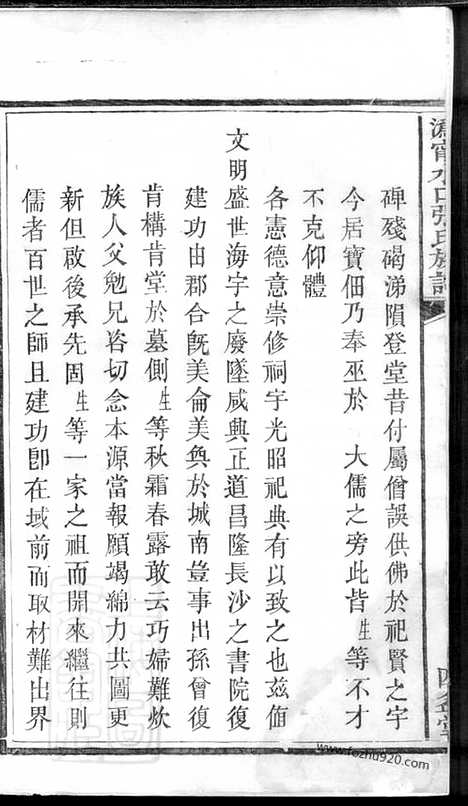 溈甯水口張氏族譜
碑殘碣涕隕登堂昔付屬僧誤供佛於祀賢之宇
今居寶佃乃奉巫於 大儒之旁此皆生等不才
不克仰體
各憲德意崇修祠宇光昭祀典有以致之也茲値
文明盛世海宇之廢墜咸興正道昌隆長沙之書院復
建功由郡合旣美侖美奐於城南豈事出孫曾復
肯構肯堂於墓側生等秋霜春露敢云巧婦難炊
族人父勉兄咨切念本源當報願竭綿力共圖更
新但啟後承先固生等一家之祖而開來繼往則
儒者百世之師且建功卽在域前而取材難出界
www.fozhu920.com